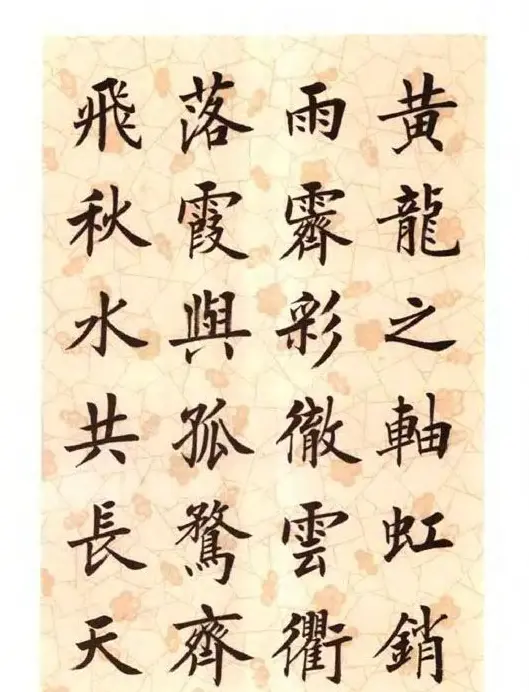 黃龍之軸虹銷
雨霽彩徹雲衢
落霞與孤鶩齊
飛秋水共長天